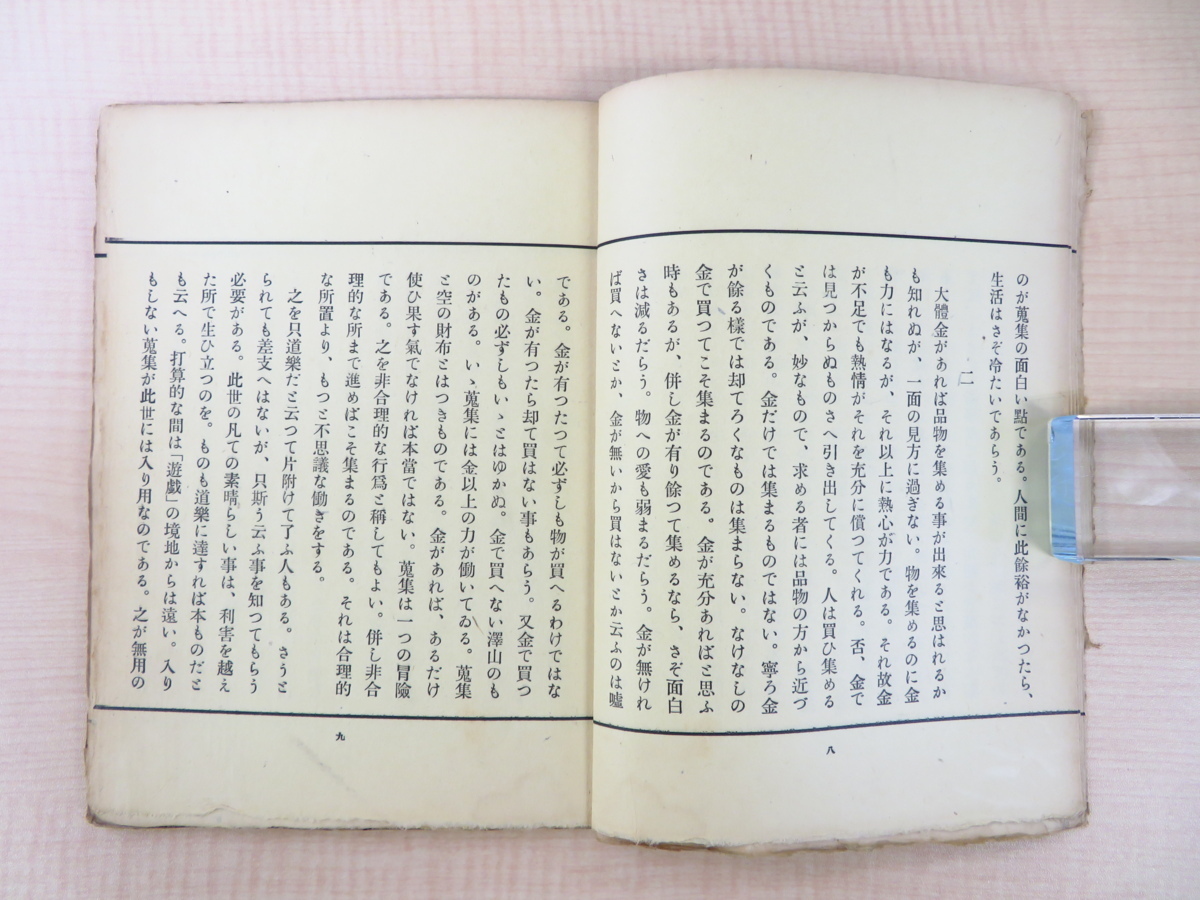 のが蒐集の面白い點である。人間に此餘裕がなかつたら、
生活はさぞ冷たいであらう。
二
大體金があれば品物を集める事が出來ると思はれるか
も知れぬが、一面の見方に過ぎない。物を集めるのに金
も力にはなるが、それ以上に熱心が力である。それ故金
が不足でも熱情がそれを充分に償つてくれる。否、金で
は見つからぬものさへ引き出してくる。人は買ひ集める
と云ふが、妙なもので、求める者には品物の方から近づ
くものである。金だけでは集まるものではない。寧ろ金
が餘る樣では却てろくなものは集まらない。なけなしの
金で買つてこそ集まるのである。金が充分あればと思ふ
時もあるが、併し金が有り餘つて集めるなら、さぞ面白
さは減るだらう。物への愛も弱まるだらう。金が無けれ
ば買へないとか、金が無いから買はないとか云ふのは嘘
八
である。金が有つたつて必ずしも物が買へるわけではな
い。金が有つたら却て買はない事もあらう。又金で買つ
たもの必ずしもいゝとはゆかぬ。金で買へない澤山のも
のがある。いゝ蒐集には金以上の力が働いてゐる。蒐集
と空の財布とはつきものである。金があれば、あるだけ
使ひ果す氣でなければ本當ではない。蒐集は一つの冒險
である。之を非合理的な行爲と稱してもよい。併し非合
理的な所まで進めばこそ集まるのである。それは合理的
な所置より、もつと不思議な働きをする。
之を只道樂だと云つて片附けて了ふ人もある。さうと
られても差支へはないが、只斯う云ふ事を知つてもらう
必要がある。此世の凡ての素晴らしい事は、利害を越え
た所で生ひ立つのを。ものも道樂に達すれば本ものだと
も云へる。打算的な間は「遊戲」の境地からは遠い。入り
もしない蒐集が此世には入り用なのである。之が無用の
九